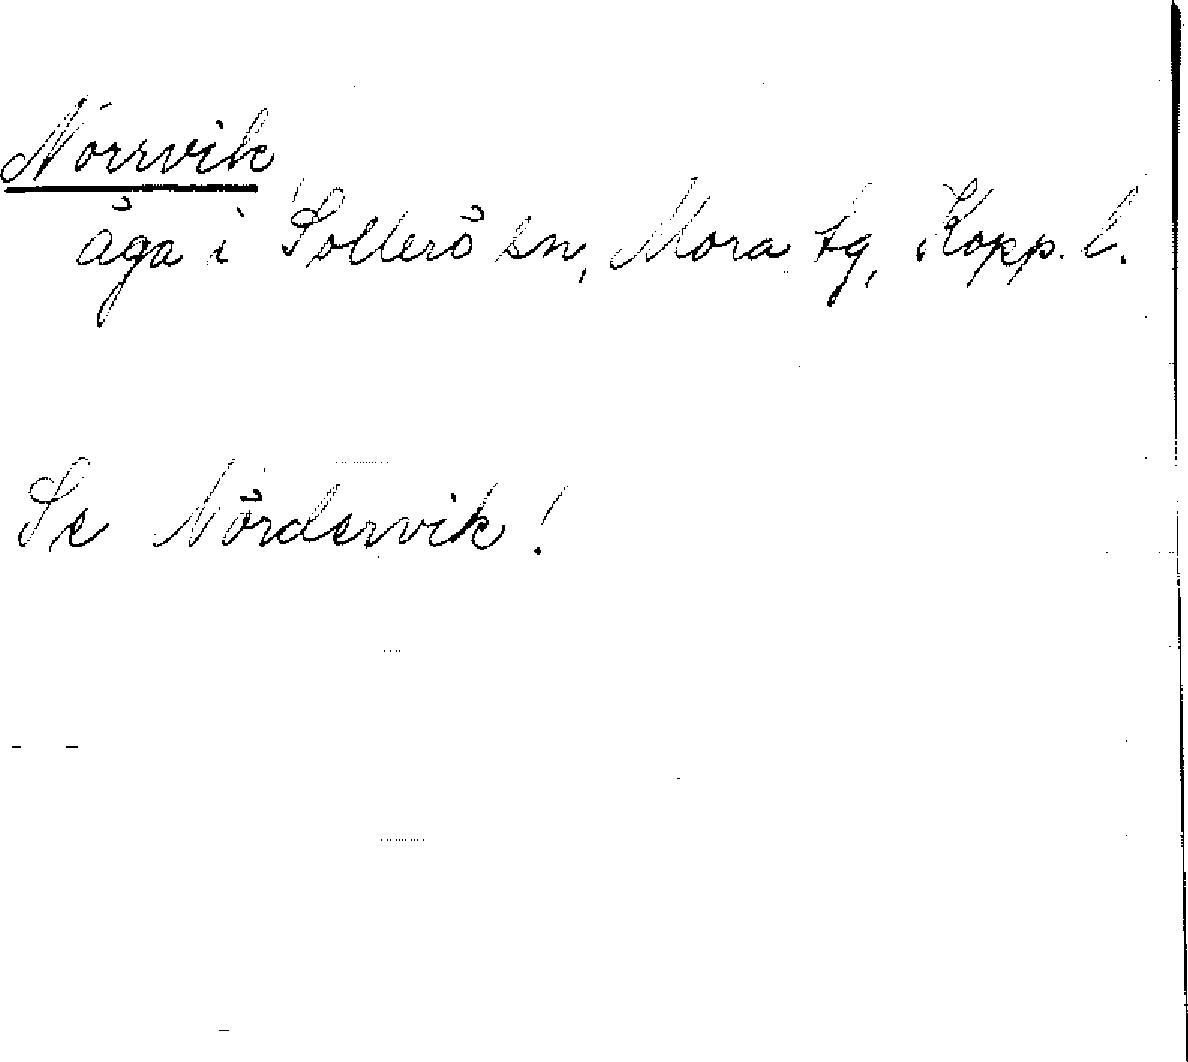 Norrvik
äga i Sollerö sn, Mora tg, Kopp. l.
Se Nördervik!